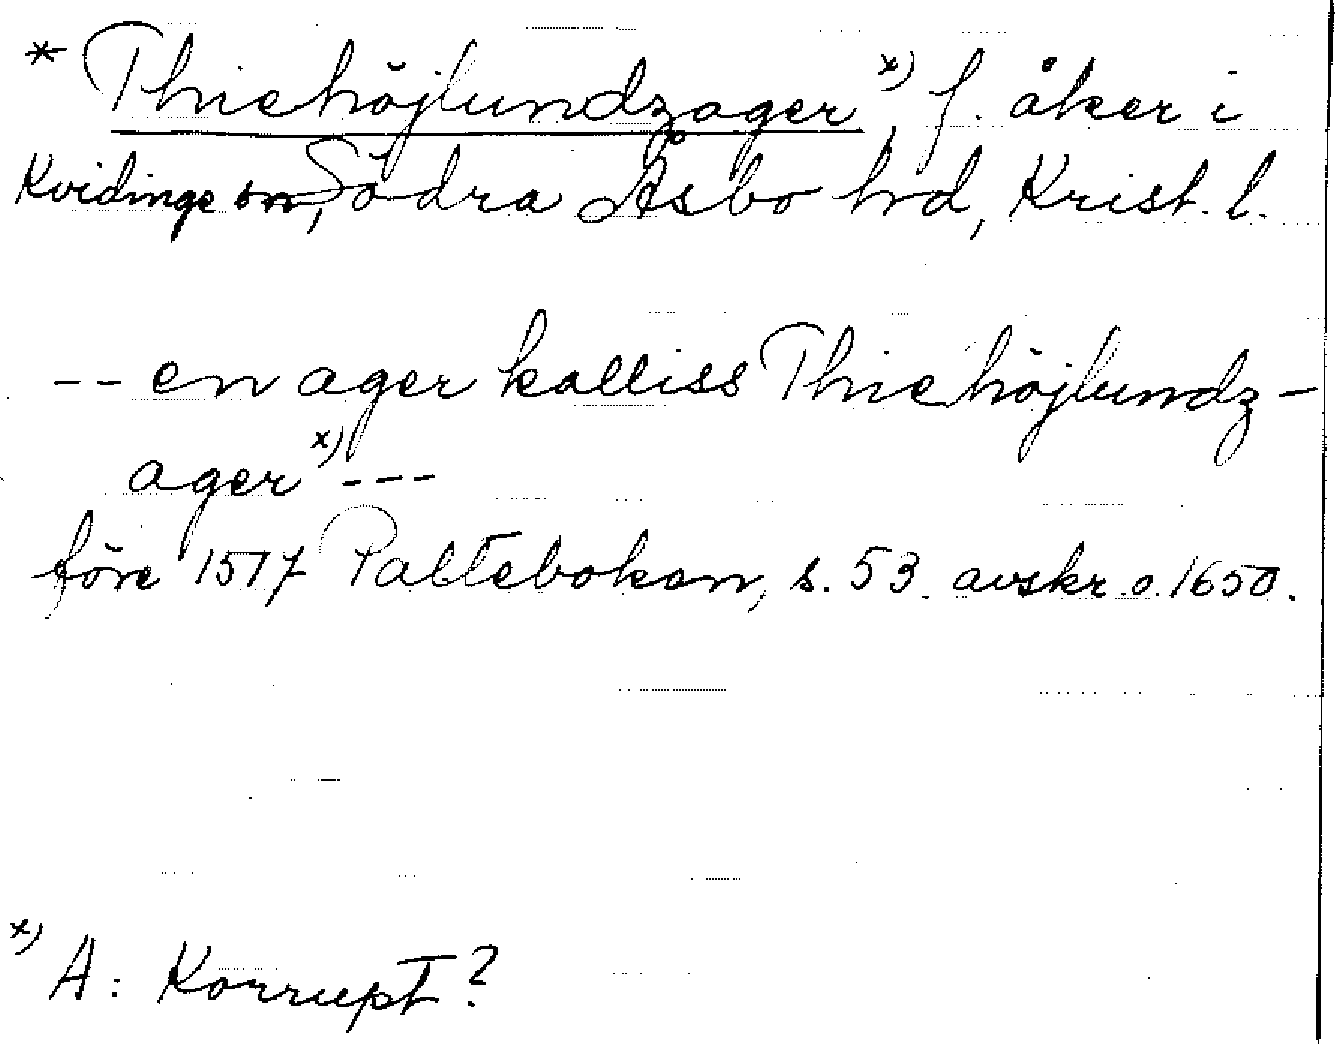 * Thiehöjlundzager x), f. åker i
Kvidinge sn, Södra Åsbo hd, Krist. l.
-- en ager kalliss Thiehöjlundz-
ager x) ---
före 1517 Paltebokon, s. 53. avskr. o. 1650.
x) A: Korrupt?